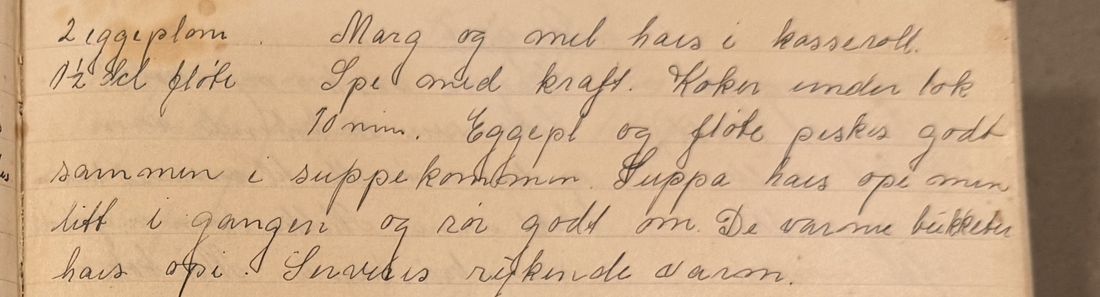 2 eggeplom. Marg og mel haes i kasseroll.
1½ dcl fløte Spe med kraft. Koker under lok
10 min. Eggepl og fløte piskes godt
sammen i suppekommen. Suppa haes opi men
litt i gangen og rør godt om. De varme bukketer
haes opi. Serveres rykende varm.